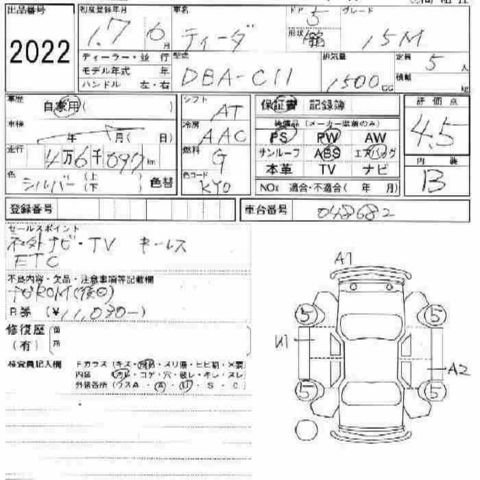 出品番号 初度登録年月 車名 ドア 5 グレード
2022 17 6月 ティーダ 形状 15M
ディーラー・並行 型式 排気量 定員
モデル年式 年 DBA-C11 1500CC 5人
ハンドル 左・右 積載 kg
車歴 自家用 シフト AT 保証書 記録簿 評価点
車検 年 月( 日) 冷房 AAC 装備品(メーカー装着のみ) 4.5
PS PW AW
走行 4万6千097km 燃料 G サンルーフ ABS エアバッグ 内装
本革 TV ナビ B
色 シルバー (上 下) 色替 色コード KY0 NOx 適合・不適合( 年 月)
登録番号 車台番号 048682
セールスポイント
社外ナビ・TV キーレス
ETC
不良内容・欠品・注意事項等記載欄
ナビROM(後日)
R券 (¥11,030-)
修復歴
(有)
検査員記入欄 Fガラス(キズ・飛石・スリ傷・ヒビ割・×要)
内装 (汚れ・コゲ・穴・破レ・キレ・スレ)
外装各所(ウスA・A・U・S・C)
A1
5 5
U1 A2
5 5